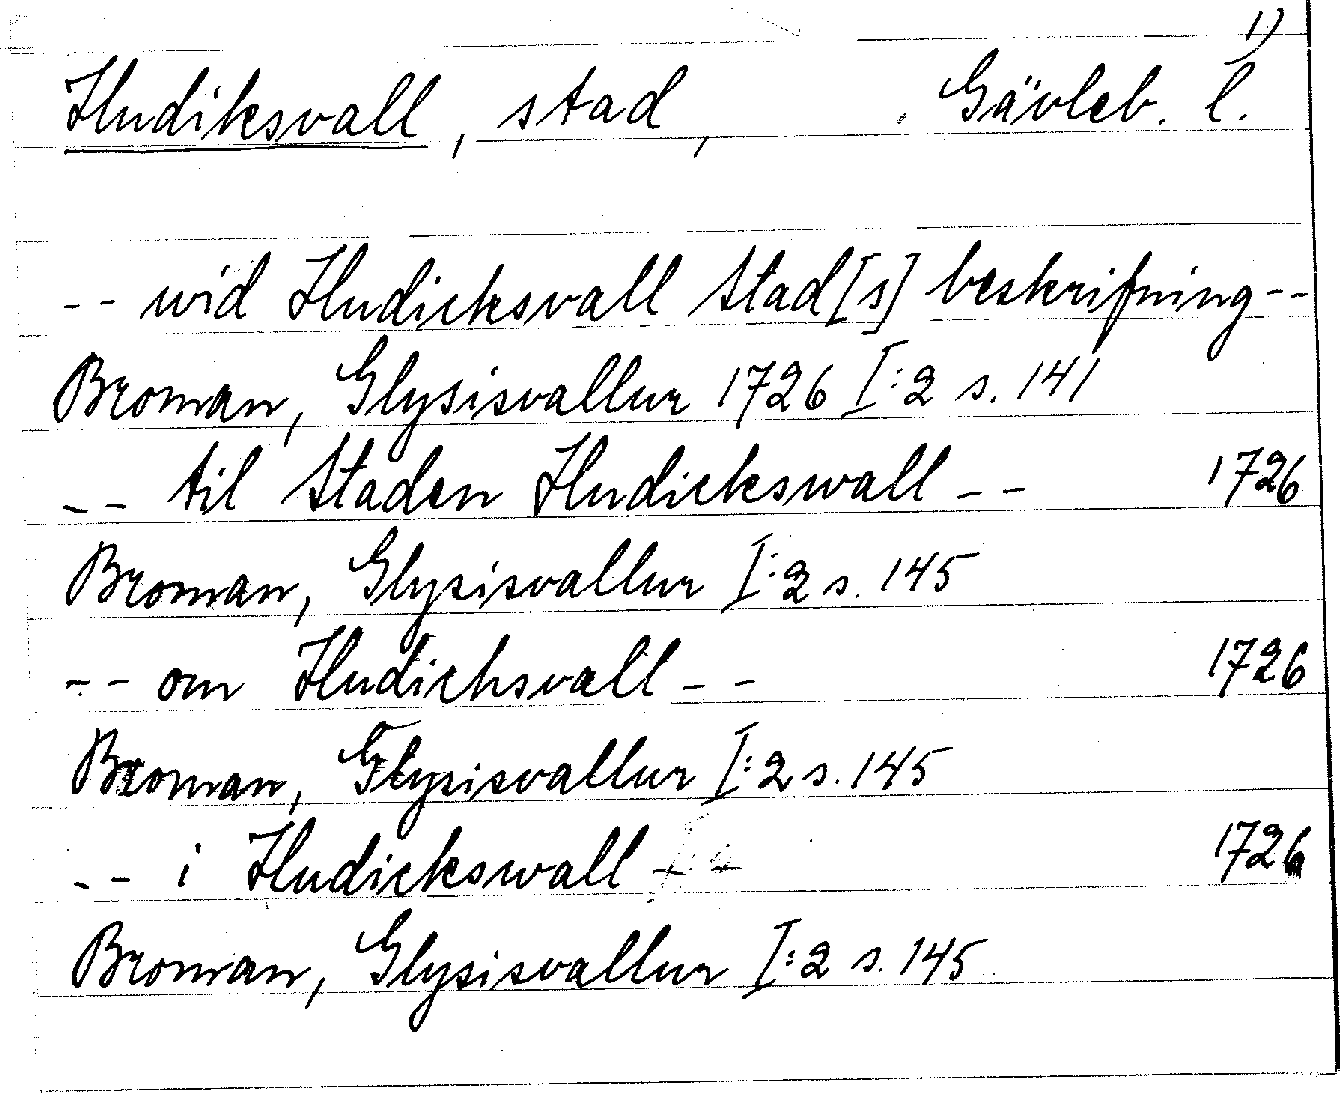 1)
Hudiksvall, stad, Gävleb. l.
-- wid Hudicksvall Stad[s] beskrifning--
Broman, Glysisvallur 1726 I:2 s. 141
-- til Staden Hudickswall -- 1726
Broman, Glysisvallur I:2 s. 145
-- om Hudichsvall -- 1726
Broman, Glysisvallur I:2 s. 145
-- i Hudickswall -- 1726
Broman, Glysisvallur I:2 s. 145